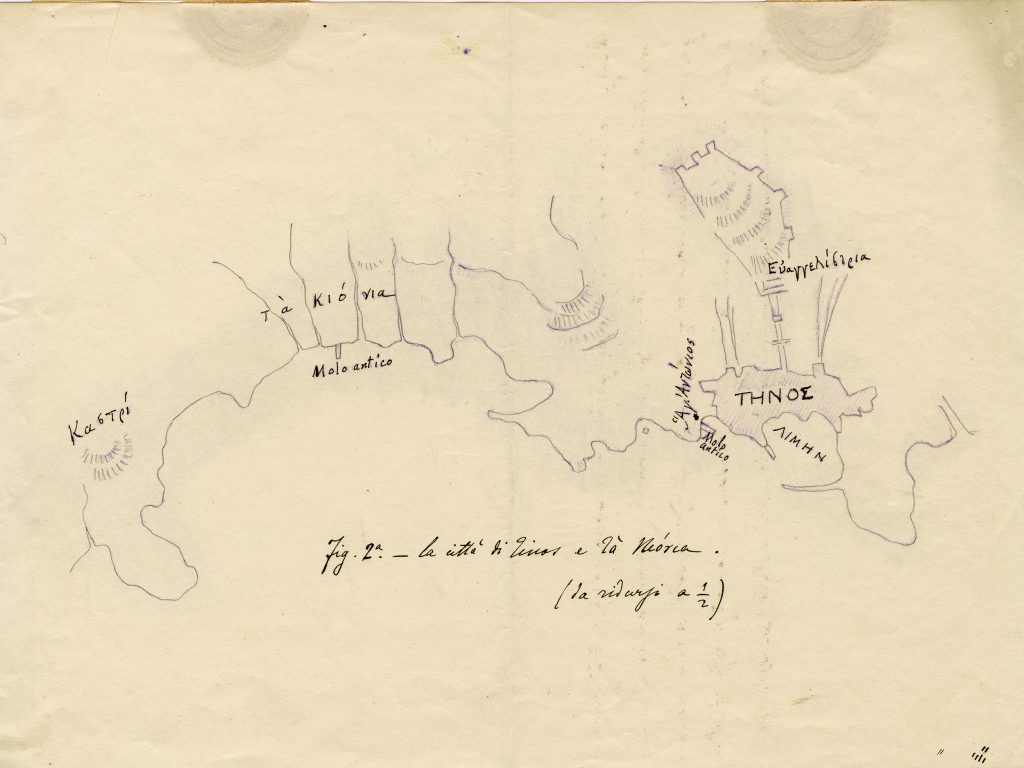 Εὐαγγελίστρια
τὰ Κιόνια
Molo antico
Ἅγ. Ἀντώνιος
ΤΗΝΟΣ
Καστρί
ΛΙΜΗΝ
Molo
antico
Fig. 2ª. — la città di Tinos e Tà Kiónia.
(da ridursi a 1/2)